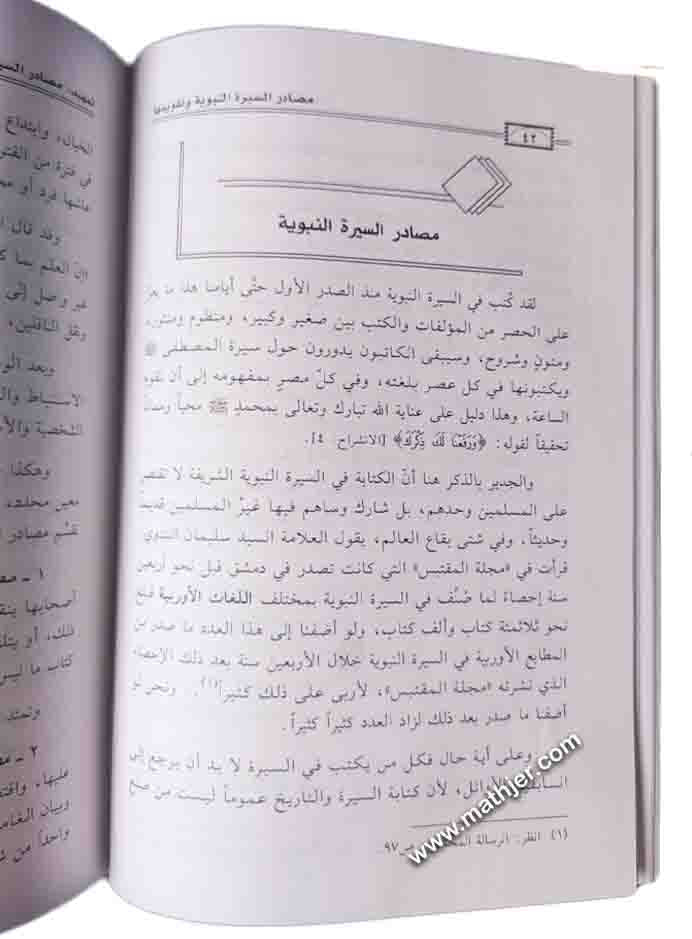 مصادر السيرة النبوية وتقويمها
٤٢
مصادر السيرة النبوية
لقد كُتب في السيرة النبوية منذ الصدر الأول حتَّى أيامنا هذه ما يعزّ
على الحصر من المؤلفات والكتب بين صغير وكبير، ومنظوم ومنثور،
ومتونٍ وشروح، وسيبقى الكاتبون يدورون حول سيرة المصطفى ﷺ
ويكتبونها في كل عصر بلغته، وفي كلّ مصرٍ بمفهومه إلى أن تقوم
الساعة، وهذا دليل على عناية الله تبارك وتعالى بمحمدٍ ﷺ محياً ومماتاً
تحقيقاً لقوله: ﴿وَرَفَعْنَا لَكَ ذِكْرَكَ﴾ [الانشراح: ٤].
والجدير بالذكر هنا أنّ الكتابة في السيرة النبوية الشريفة لا تقتصر
على المسلمين وحدهم، بل شارك وساهم فيها غيرُ المسلمين قديماً
وحديثاً، وفي شتى بقاع العالم، يقول العلامة السيد سليمان الندوي:
قرأت في «مجلة المقتبس» التي كانت تصدر في دمشق قبل نحو أربعين
سنة إحصاءً لما صُنِّف في السيرة النبوية بمختلف اللغات الأوربية فبلغ
نحو ثلاثمئة كتاب وألف كتاب، ولو أضفنا إلى هذا العدد ما صدر من
المطابع الأوربية في السيرة النبوية خلال الأربعين سنة بعد ذلك الإحصاء
الذي نشرته «مجلة المقتبس»، لأربى على ذلك كثيراً(١). ونحن لو
أضفنا ما صدر بعد ذلك لزاد العدد كثيراً كثيراً.
وعلى أية حال فكل من يكتب في السيرة لا بد أن يرجع إلى
لأن كتابة السيرة والتاريخ عموماً ليست من صنع
(١) انظر: الرسالة ص٩٧.
www.mathjer.com
الخيال، وابتداع
في فترة من
فرد أو
وقد قال
العلم بما
وصل إلى
ونقل الناقلين،
وبعد
الشخصية
وهكذا
معين
مصادر
١ ـ
أصحابها
ذلك، أو
كتاب ما ليس
٢ ـ
عليها،
وبيان
واحداً من